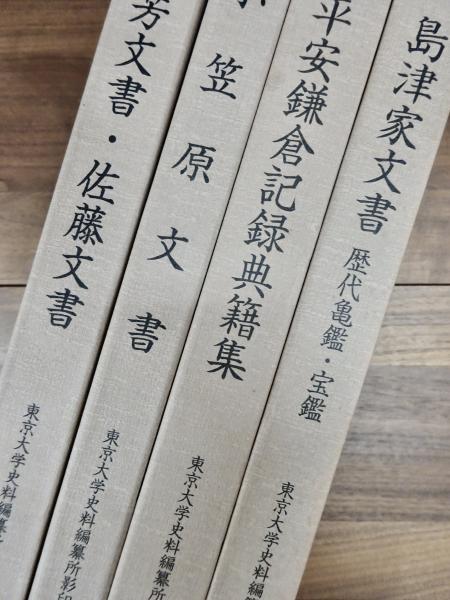 島津家文書 歴代亀鑑・宝鑑
東京大学史料編纂
平安鎌倉記録典籍集
東京大学史料編纂所
小笠原文書
東京大学史料編纂所影印
芳文書・佐藤文書
東京大学史料編纂